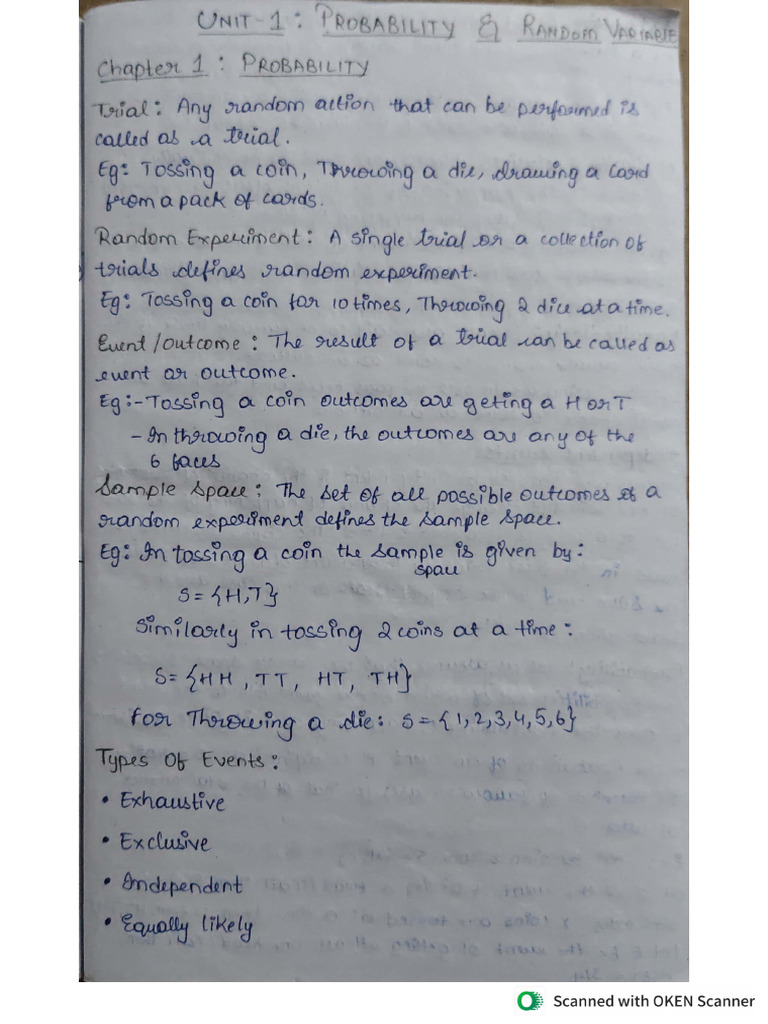 UNIT-1: PROBABILITY & RANDOM VARIABLE
Chapter 1 : PROBABILITY
Trial: Any random action that can be performed is
called as a trial.
Eg: Tossing a coin, Throwing a die, drawing a card
from a pack of cards.
Random Experiment: A single trial or a collection of
trials defines random experiment.
Eg: Tossing a coin for 10 times, Throwing 2 dice at a time.
Event/Outcome: The result of a trial can be called as
event or outcome.
Eg:- Tossing a coin outcomes are geting a H or T
- In throwing a die, the outcomes are any of the
6 faces
Sample Space: The set of all possible outcomes of a
random experiment defines the sample space.
Eg: In tossing a coin the sample is given by:
space
S = {H,T}
Similarly in tossing 2 coins at a time:
S= {HH, TT, HT, TH}
For Throwing a die: S = {1,2,3,4,5,6}
Types Of Events:
• Exhaustive
• Exclusive
• Independent
• Equally likely
Scanned with OKEN Scanner